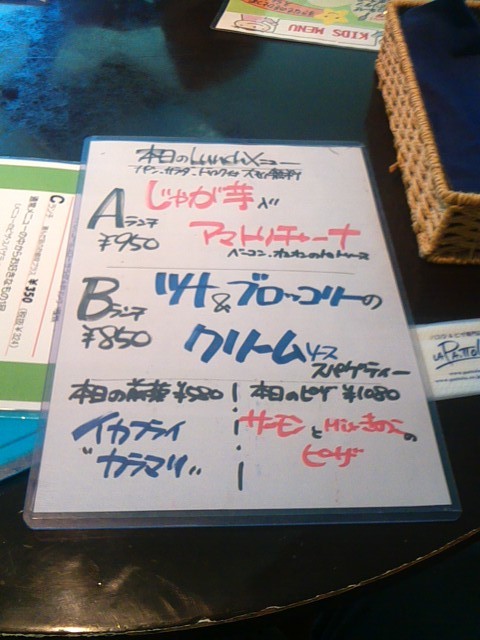 KIDS MENU
本日のLunchメニュー
パン・サラダ・ドリンク付 大盛無料
Aランチ
¥950
じゃが芋入り
アマトリチャーナ
ベーコン、オニオンのトマトソース
Bランチ
¥850
ツナ&ブロッコリーの
クリームソース
スパゲティー
本日の前菜 ¥580
イカフライ
"カラマリ"
本日のピザ ¥1080
サーモンときのこの
ピザ
Cランチ
¥350